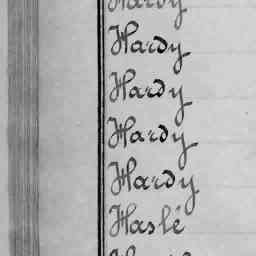 Hardy
Hardy
Hardy
Hardy
Hardy
Haslé